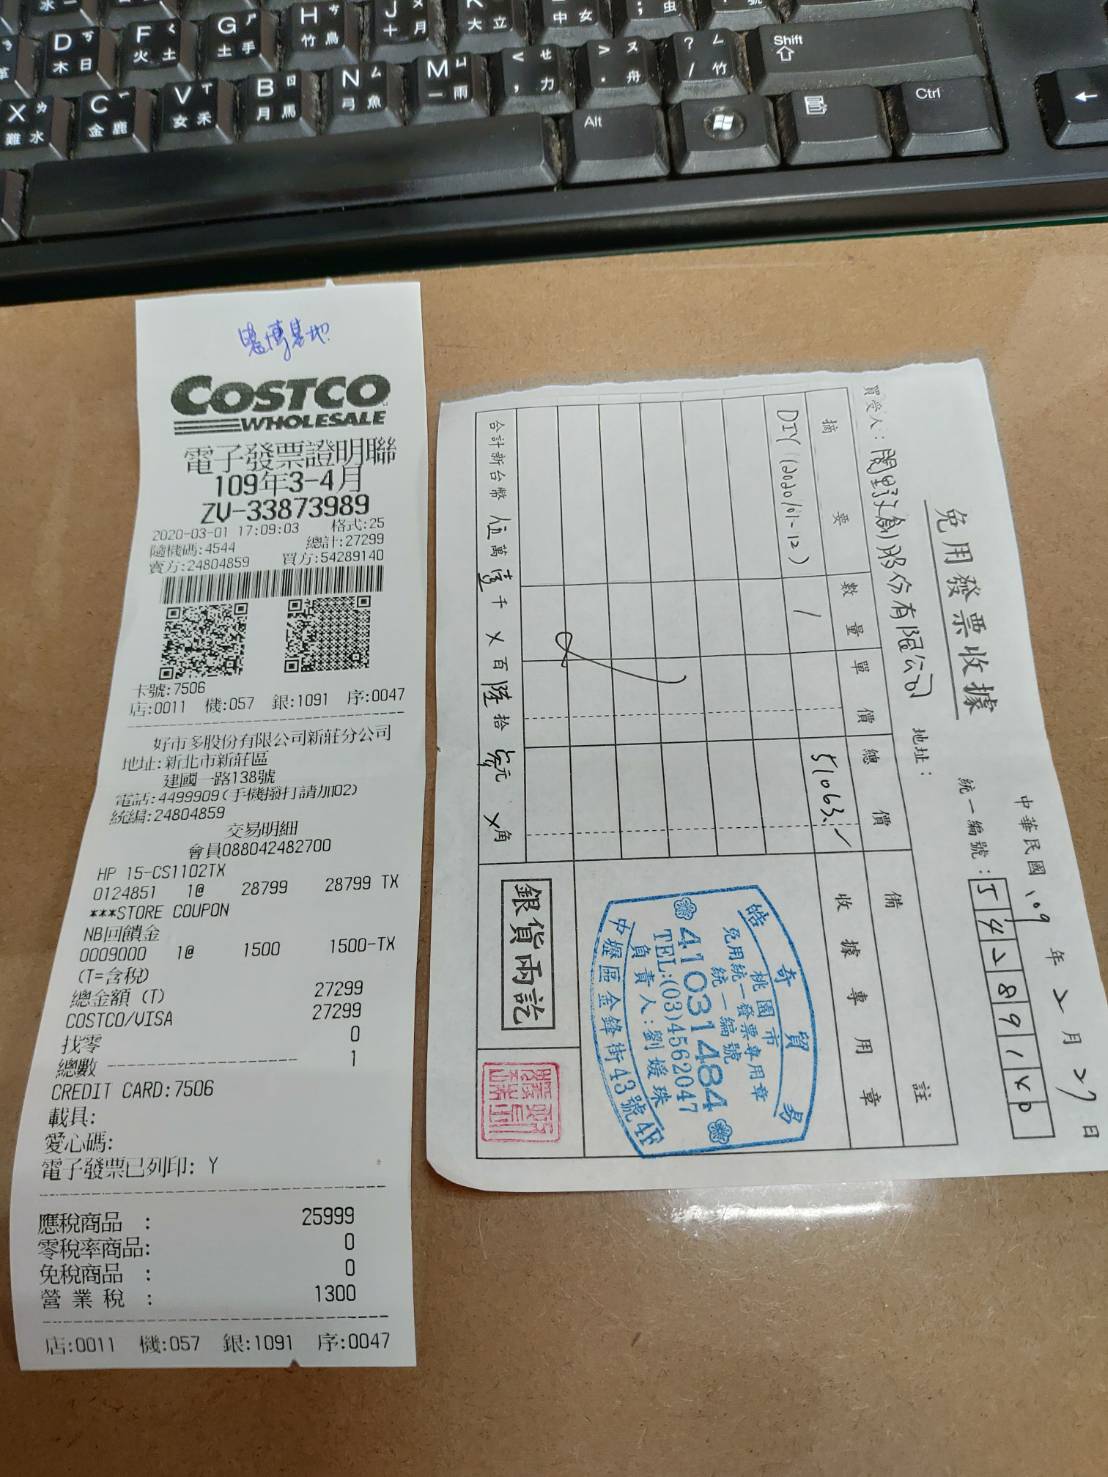 D 木 日
F 火 土
G 土 手
H 竹 鳥
J 十 月
K 大 立
中 女
X 難 水
C 金 鹿
V 女 禾
B 月 馬
N 弓 魚
M 一 雨
< , 力
> . 舟
? / 竹
Shift
Alt
Ctrl
COSTCO
WHOLESALE
電子發票證明聯
109年3-4月
ZV-33873989
2020-03-01 17:09:03 格式:25
隨機碼:4544 總計:27299
賣方:24804859 買方:54289140
卡號:7506
店:0011 機:057 銀:1091 序:0047
好市多股份有限公司新莊分公司
地址:新北市新莊區
建國一路138號
電話:4499909(手機撥打請加02)
統編:24804859
交易明細
會員088042482700
HP 15-CS1102TX
0124851 1@ 28799 28799 TX
***STORE COUPON
NB回饋金
0009000 1@ 1500 1500-TX
(T=含稅)
總金額 (T) 27299
COSTCO/VISA 27299
找零 0
總數 1
CREDIT CARD:7506
載具:
愛心碼:
電子發票已列印: Y
應稅商品 : 25999
零稅率商品: 0
免稅商品 : 0
營業稅 : 1300
店:0011 機:057 銀:1091 序:0047
免用發票收據
中華民國 109 年 2 月 27 日
統一編號: 54289140
買受人: 股份有限公司 地址:
摘要 數量 單價 總價 備註
DIY (2020/01-12) 1 51063
收據專用章
合計新台幣 伍萬壹千X百陸拾參元X角
銀貨兩訖
皓奇貿易
桃園市
免用統一發票專用章
統一編號
41031484
TEL:(03)4562047
負責人:劉媛珠
中壢區金鋒街43號4F